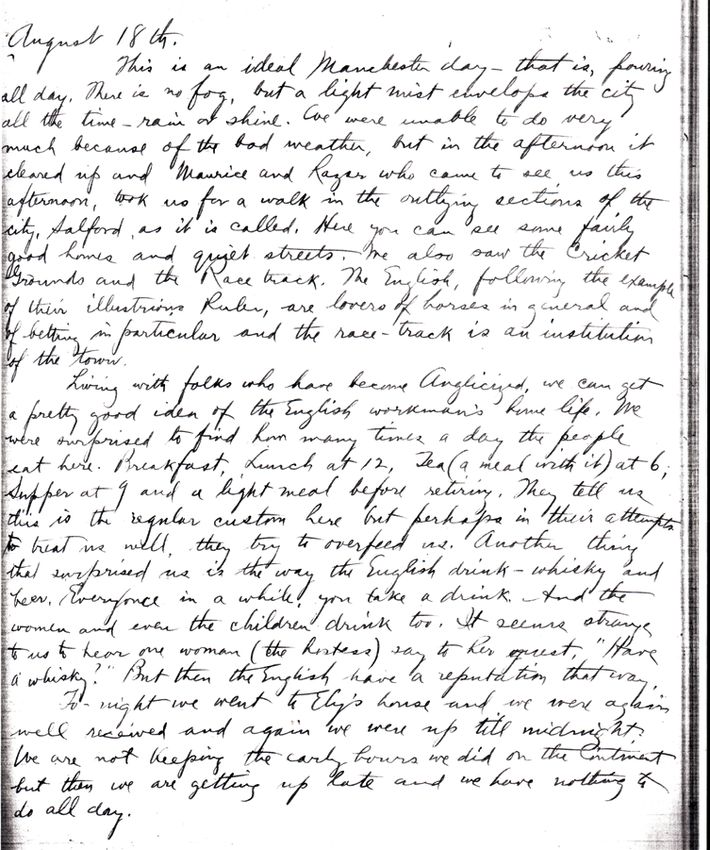 August 18th.
This is an ideal Manchester day - that is, pouring
all day. There is no fog, but a light mist envelops the city
all the time - rain or shine. We were unable to do very
much because of the bad weather, but in the afternoon it
cleared up and Maurice and who came to see us this
afternoon, took us for a walk in the outlying sections of the
city, Salford, as it is called. Here you can see some fairly
good homes and quiet streets. We also saw the Cricket
Grounds and the Race track. The English, following the example
of their illustrious Ruler, are lovers of horses in general and
of betting in particular and the race-track is an institution
of the town.
Living with folks who have become Anglicized, we can get
a pretty good idea of the English workman's home life. We
were surprised to find how many times a day the people
eat here. Breakfast, Lunch at 12, Tea (a meal with it) at 6,
Supper at 9 and a light meal before retiring. They tell us
this is the regular custom here but perhaps in their attempts
to treat us well, they try to overfeed us. Another thing
that surprised us is the way the English drink - whisky and
beer. Everyonce in a while, you take a drink. And the
women and even the children drink too. It seems strange
to us to hear one woman (the hostess) say to her guest, "Have
a whisky?" But then the English have a reputation that way.
To-night we went to house and we were again
well received and again we were up till midnight.
We are not keeping the early hours we did on the Continent
but then we are getting up late and we have nothing to
do all day.